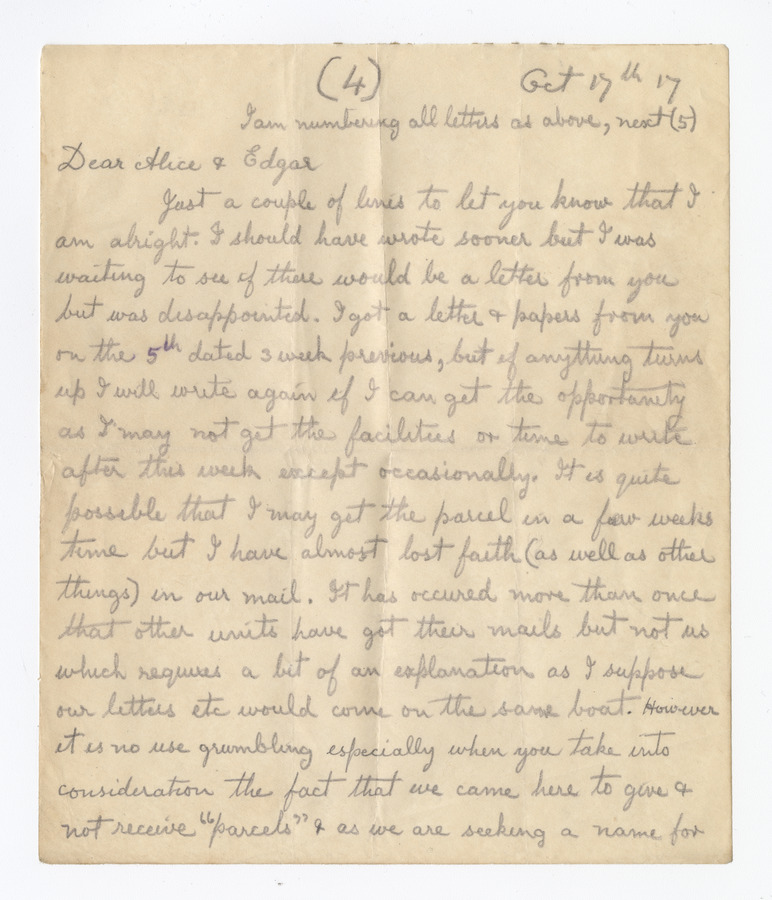 (4) Oct 17th 17
I am numbering all letters as above, next (5)
Dear Alice & Edgar
Just a couple of lines to let you know that I
am alright. I should have wrote sooner but I was
waiting to see if there would be a letter from you
but was disappointed. I got a letter & papers from you
on the 5th dated 3 week previous, but if anything turns
up I will write again if I can get the opportunity
as I may not get the facilities or time to write
after this week except occasionally. It is quite
possible that I may get the parcel in a few weeks
time but I have almost lost faith (as well as other
things) in our mail. It has occured more than once
that other units have got their mails but not us
which requires a bit of an explanation as I suppose
our letters etc would come on the same boat. However
it is no use grumbling especially when you take into
consideration the fact that we came here to give &
not receive "parcels" & as we are seeking a name for